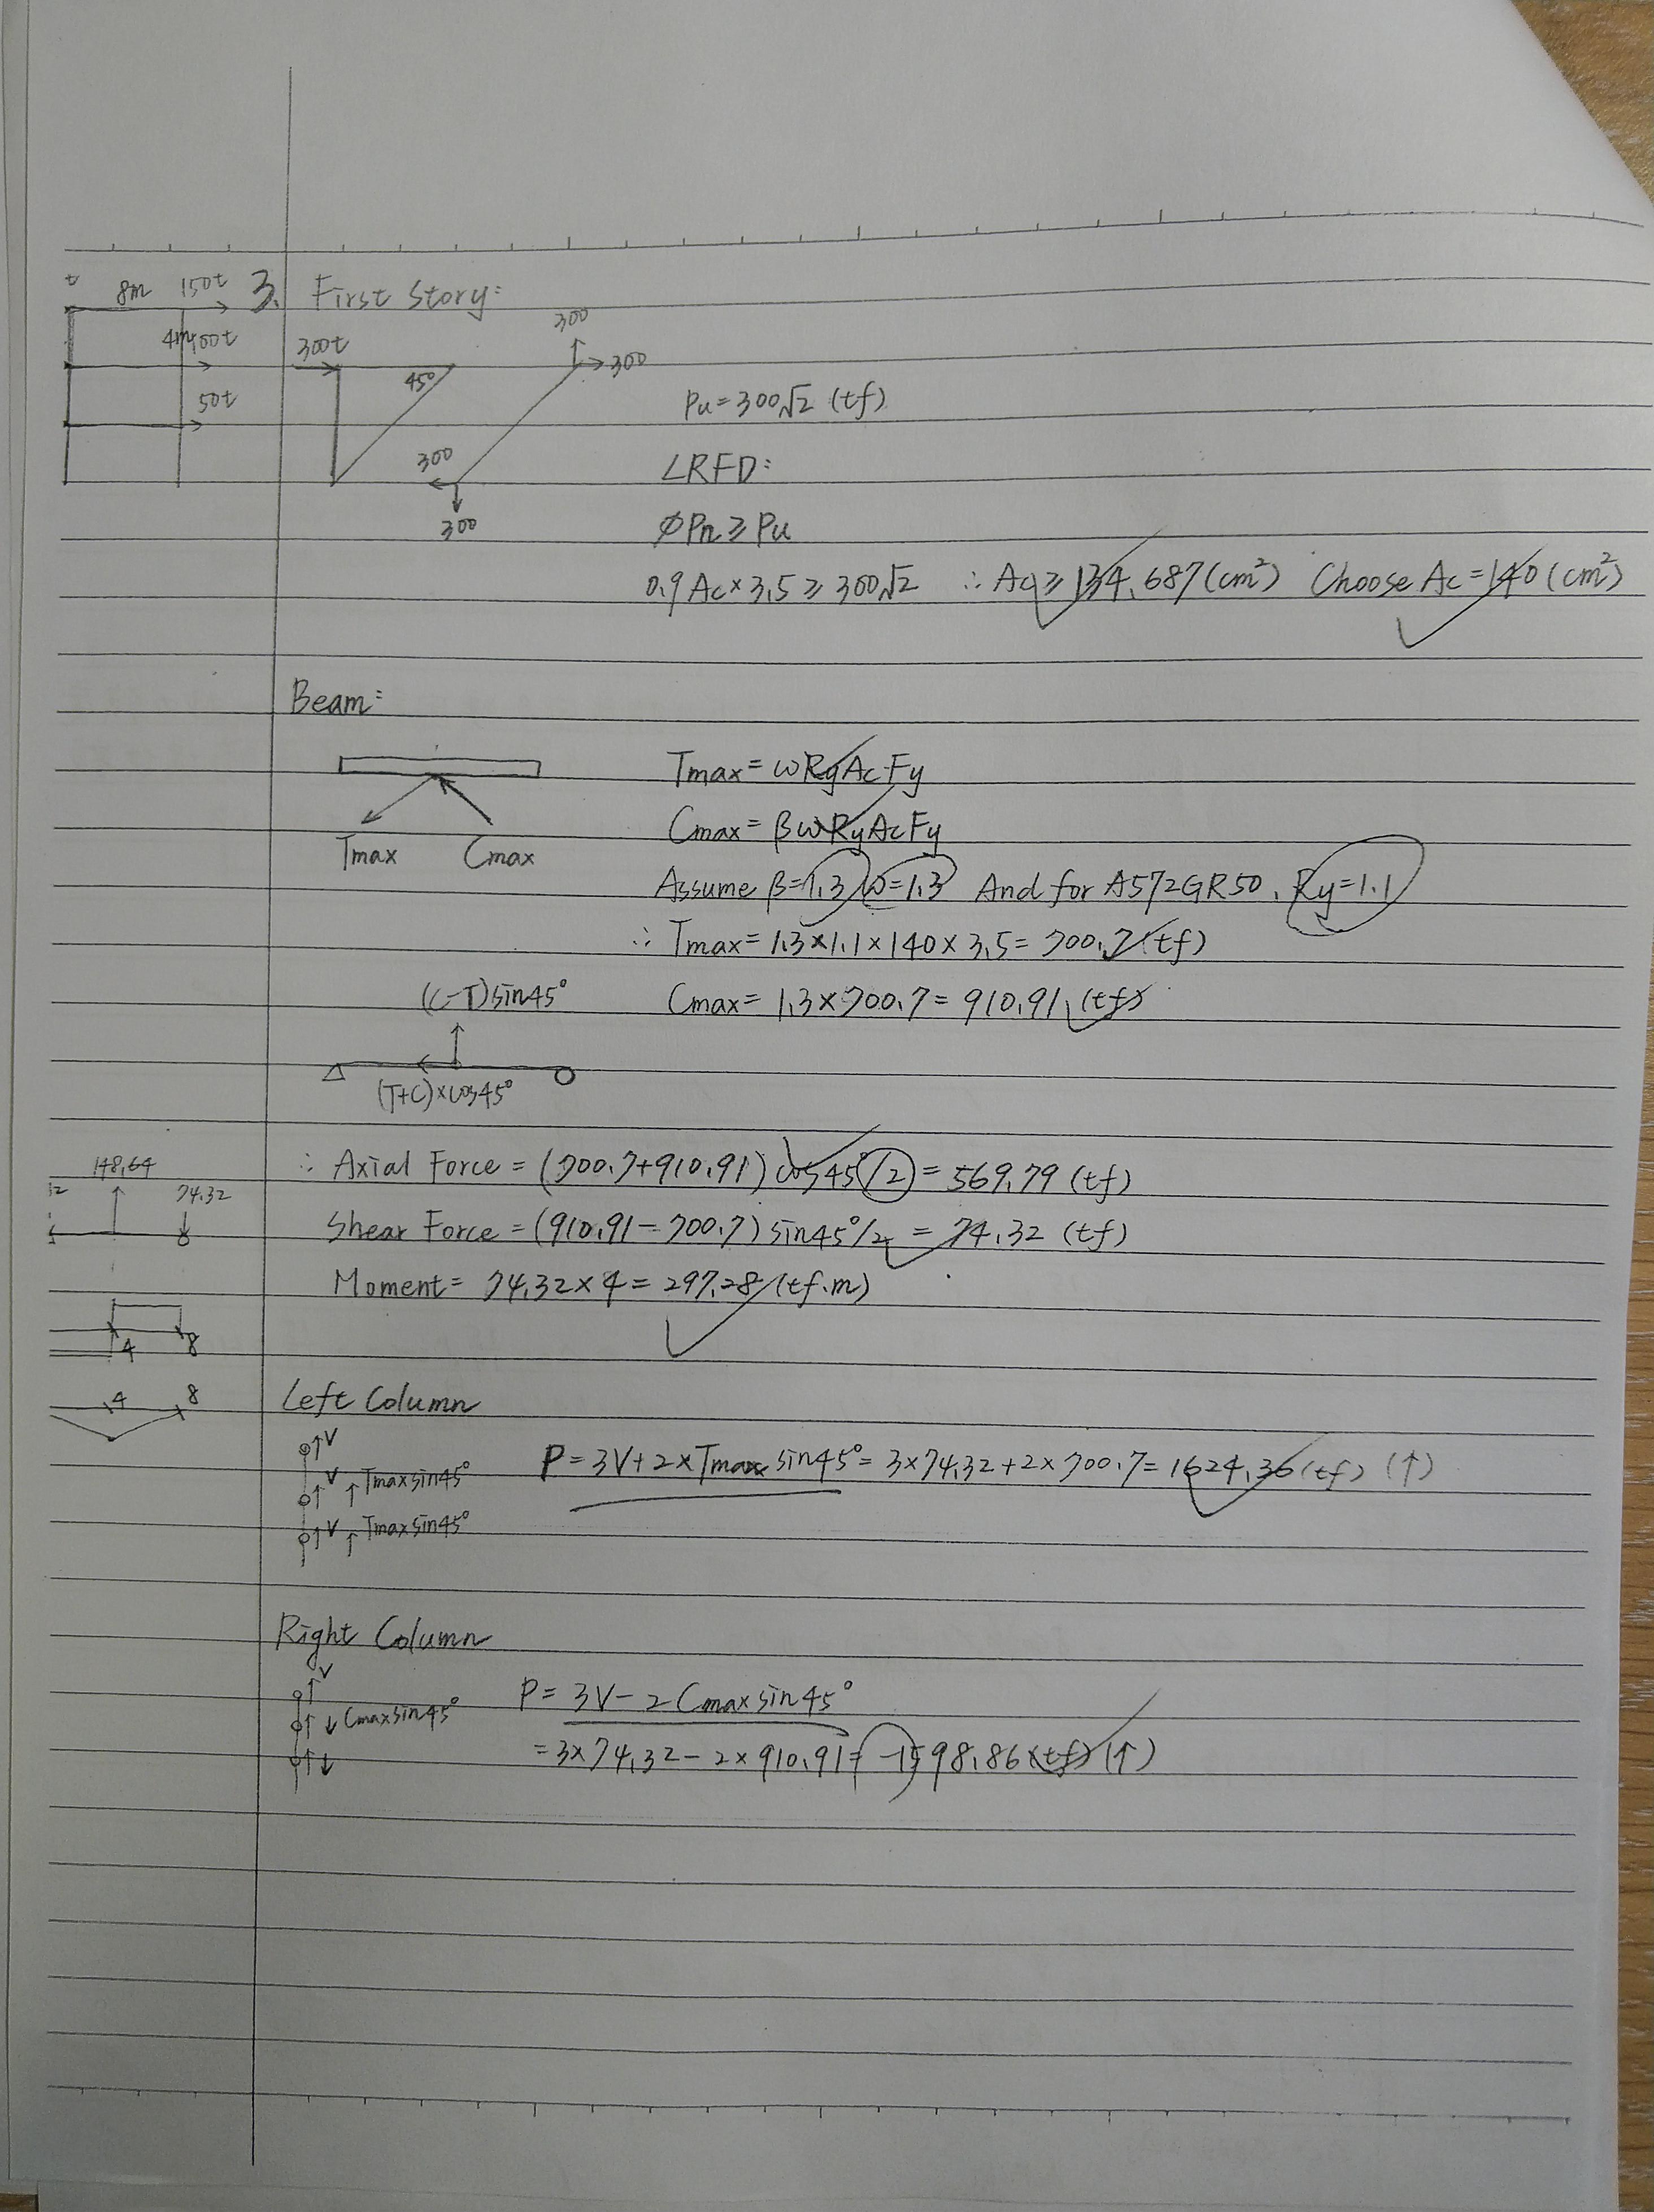 8m 150t
4m 100t
50t
3. First Story:
300t
45°
300
300
300
300
Pu=300√2 (tf)
LRFD:
ϕPn≥Pu
0.9Ac×3.5≥300√2 ∴ Ac≥134.687(cm²) Choose Ac=140(cm²)
Beam:
Tmax Cmax
Tmax=ωRyAcFy
Cmax=βωRyAcFy
Assume β=1.3 ω=1.3 And for A572GR50, Ry=1.1
∴ Tmax=1.3×1.1×140×3.5=700.7(tf)
Cmax=1.3×700.7=910.91(tf)
(C-T)sin45°
(T+C)×cos45°
148.64
74.32
∴ Axial Force=(700.7+910.91)cos45°/2=569.79(tf)
Shear Force=(910.91-700.7)sin45°/2=74.32(tf)
Moment=74.32×4=297.28(tf.m)
4 8
4 8
Left Column
V
V Tmaxsin45°
V Tmaxsin45°
P=3V+2×Tmaxsin45°=3×74.32+2×700.7=1624.36(tf) (↑)
Right Column
V
Cmaxsin45°
P=3V-2Cmaxsin45°
=3×74.32-2×910.91=-1598.86(tf)(↑)